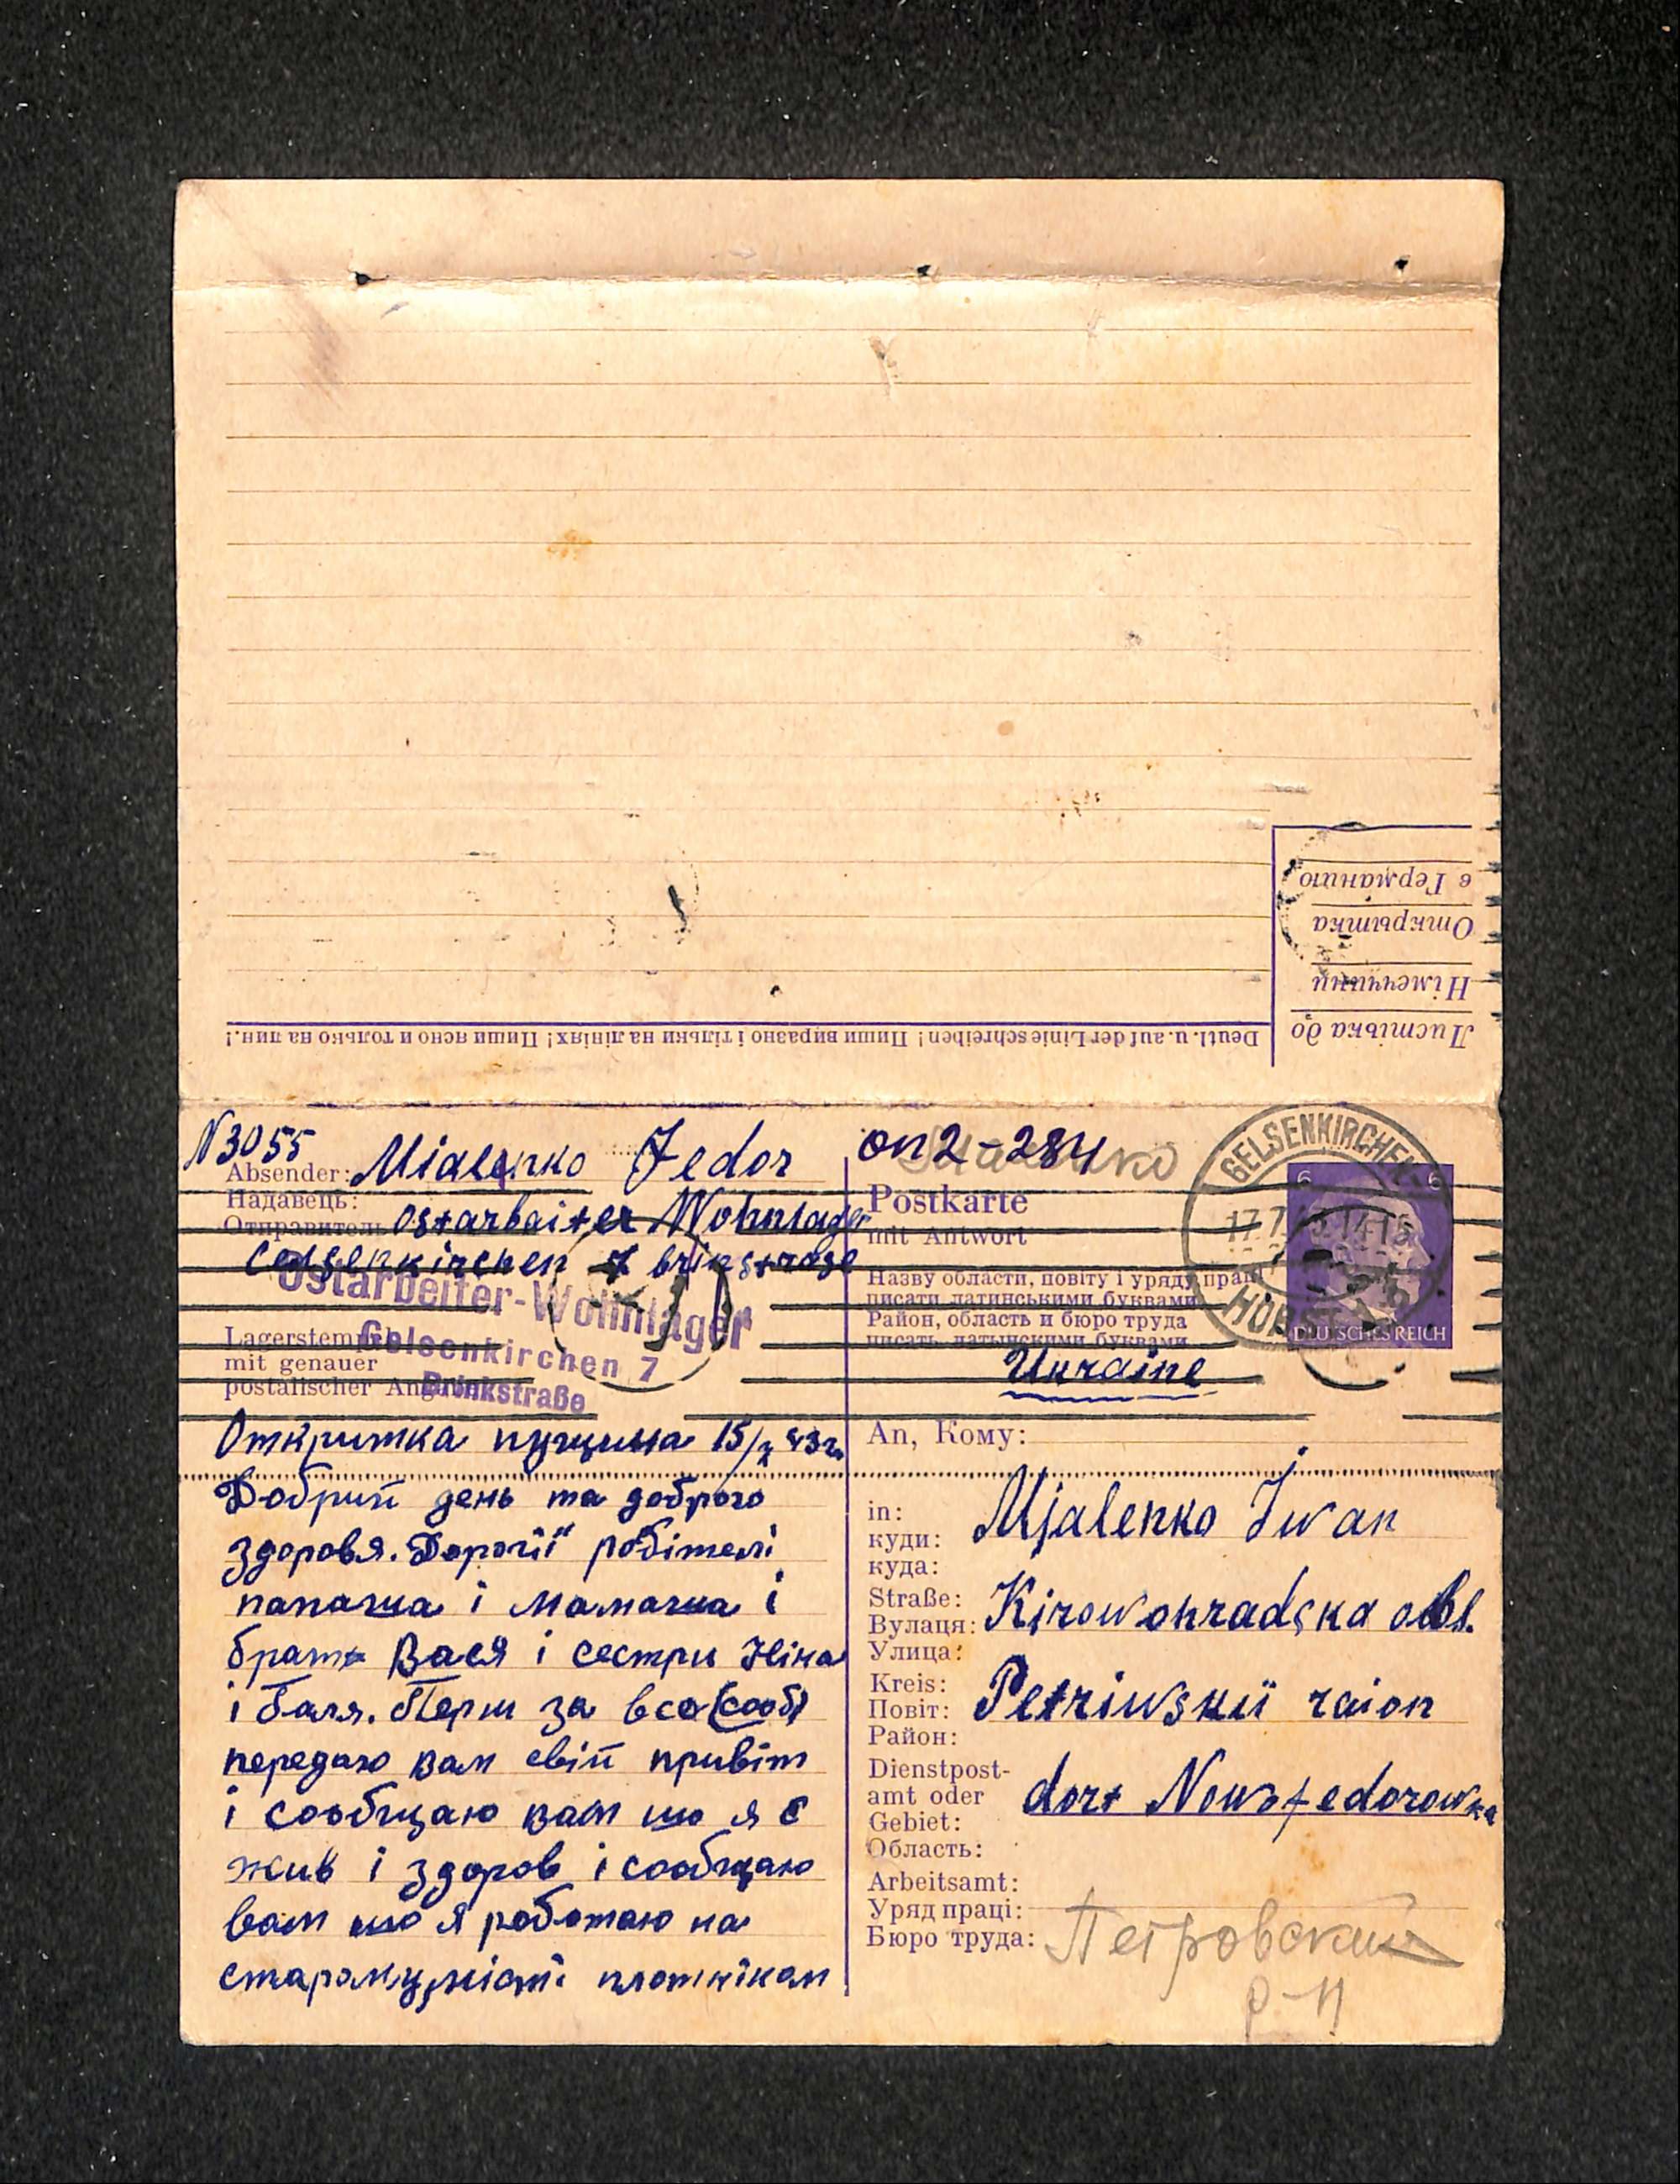 в Германию
Открытка
Німеччини
Листівка до
Deutl. u. auf der Linie schreiben! Пиши виразно і тільки на лініях! Пиши ясно и только на лин.!
N3055
Absender: Mialenko Fedor
Надавець:
Отправитель: Ostarbaiter Wohnlager
Celsenkirchen 7 brinsstrase
Ostarbeiter-Wohnlager
Gelsenkirchen 7
Brinkstraße
Lagerstempel
mit genauer
postalischer Angabe
Откритка пущина 15/7 43 г.
Добрий день та доброго
здоровя. Дорогії робітелі
папаша і мамаша і
брат Вася і сестри Ніна
і Галя. Перш за все (сооб)
передаю вам свій привіт
і сообщаю вам що я є
жив і здоров і сообщаю
вам що я работаю на
старому місті плотніком
оп 2-284
Postkarte
mit Antwort
GELSENKIRCHEN
HORST
6 6
DEUTSCHES REICH
Назву области, повіту і уряду праці
писати латинськими буквами
Район, область и бюро труда
писать латынскими буквами
Ukraine
An, Кому:
in:
куди:
куда:
Mjalenko Iwan
Straße:
Вулаця:
Улица:
Kirowohradska obl.
Kreis:
Повіт:
Район:
Petriwskii raion
Dienstpost-
amt oder
Gebiet:
Область:
dorf Nowofedorowka
Arbeitsamt:
Уряд праці:
Бюро труда:
Петровский
р-н